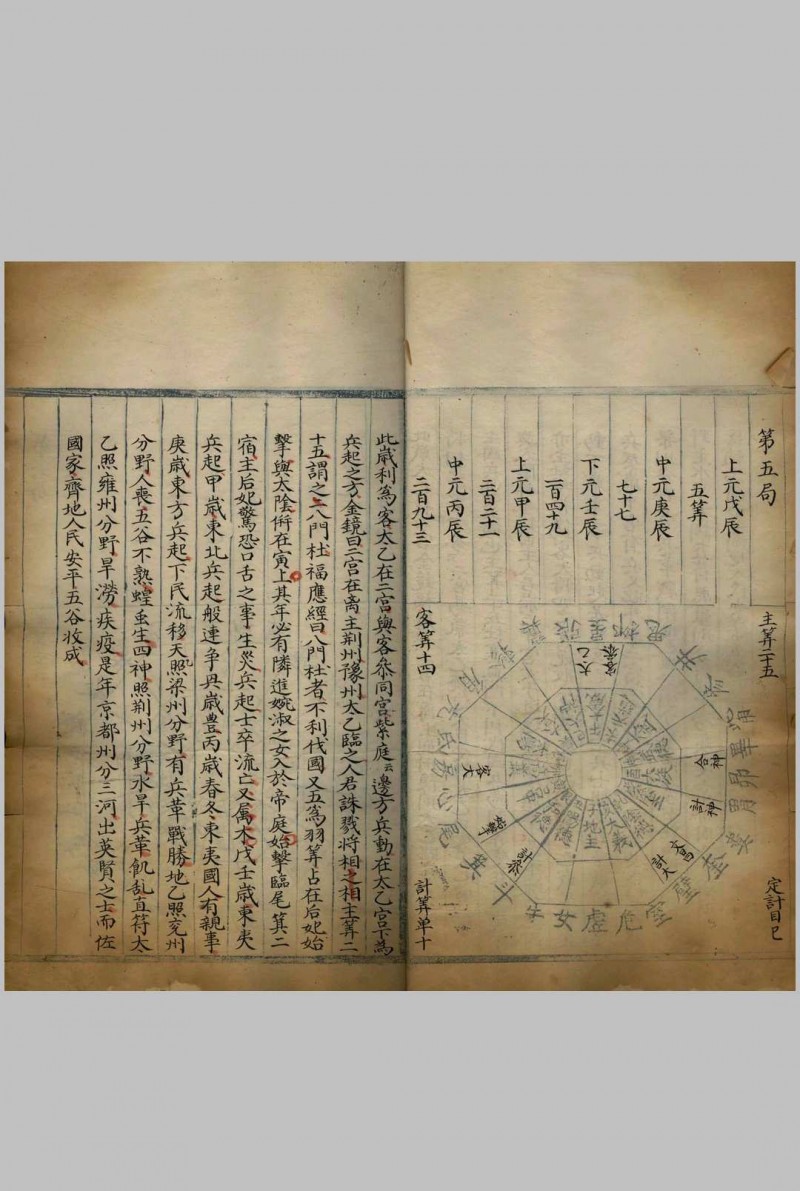 第五局
上元戊辰
五筭
中元庚辰
七十七
下元壬辰
一百四十九
上元甲辰
二百二十一
中元丙辰
二百九十三
主筭二十五
定計目巳
客筭十四
計筭单十
太乙
客叅
合神
計神
文昌
計大
計叅
始擊
客大
地主
女虚危室
此歲利爲客太乙在二宫與客叅同宫紫庭云邊方兵動在太乙宫下爲
兵起之方金鏡曰二宫在离主荆州豫州太乙臨之人君誅戮將相之相主筭二
十五謂之八門杜福應經曰八門杜者不利伐國又五爲羽筭占在后妃始
擊與太陰併在寅上其年必有隣進婉淑之女入於帝庭始擊臨尾箕二
宿主后妃驚恐口舌之事生災兵起士卒流亡又属木戊壬歲東夷
兵起甲歲東北兵起般連争與歲豊丙歲春冬東夷國人有親事
庚歲東方兵起下民流移天照梁州分野有兵革戰勝地乙照兖州
分野人喪五谷不熟蝗虫生四神照荆州分野水旱兵革飢乱直符太
乙照雍州分野旱澇疾疫是年京都州分三河出英賢之士而佐
國家齊地人民安平五谷收成